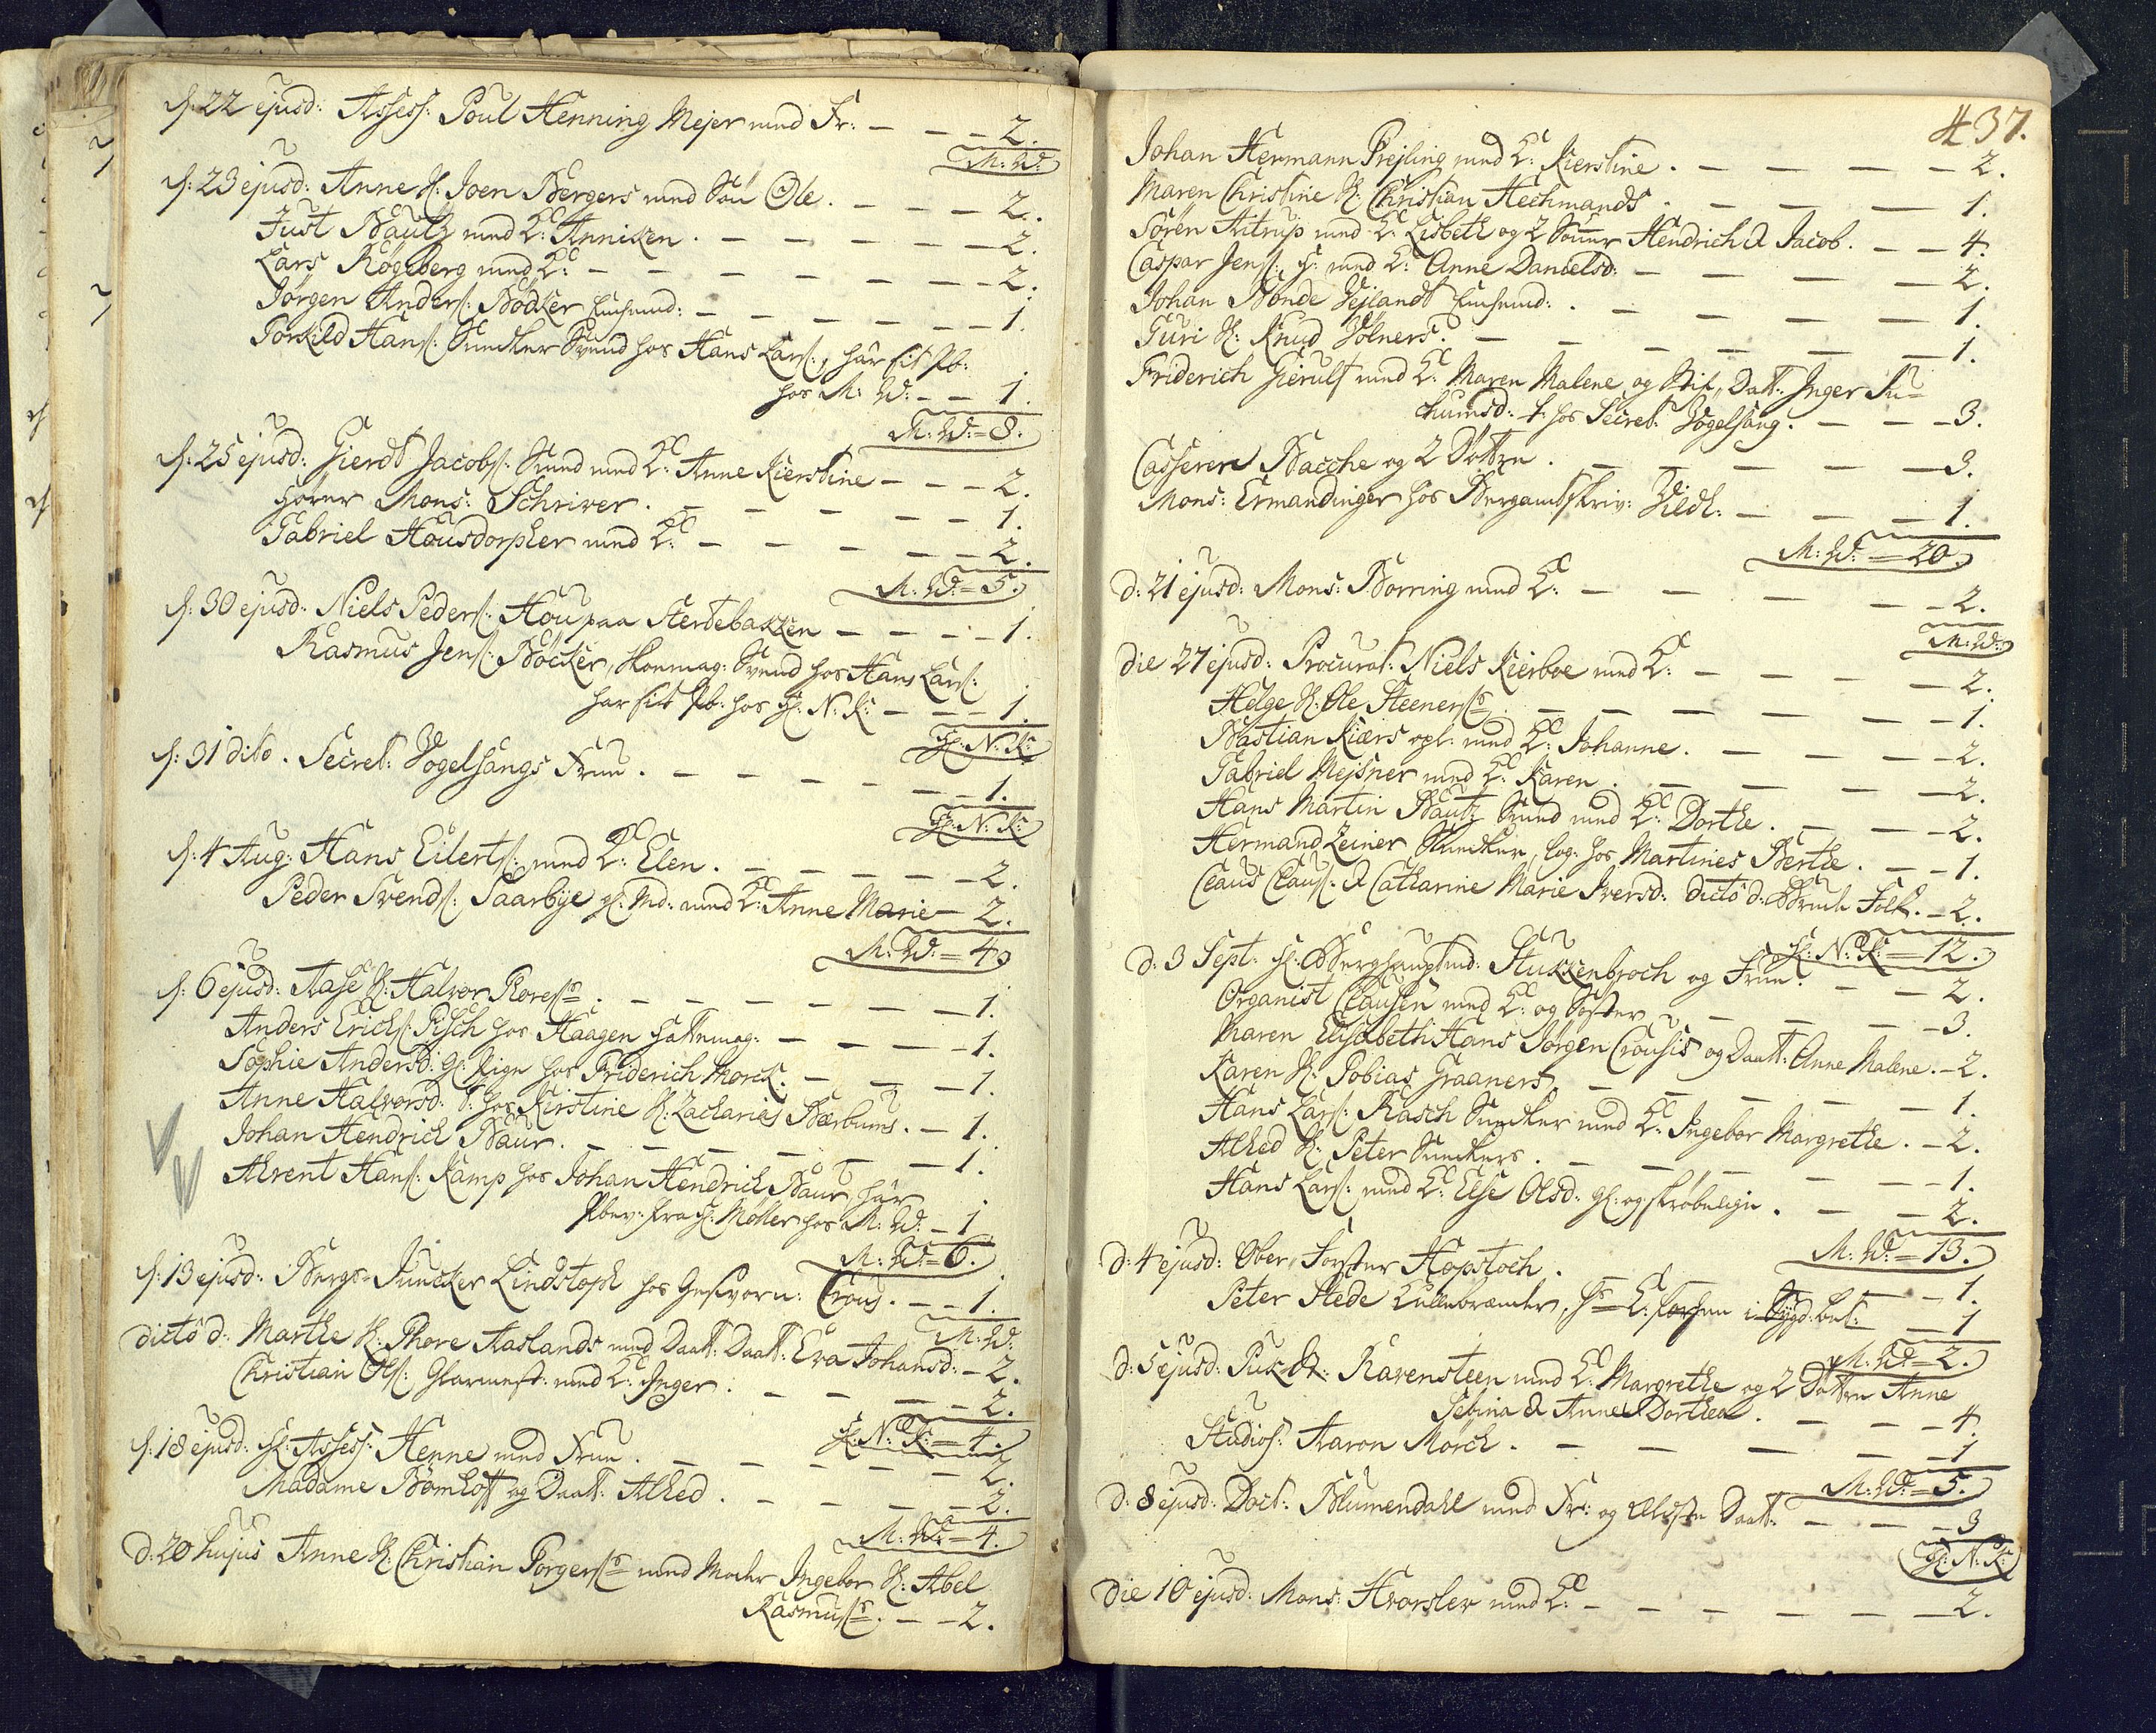 d: 22 ejusd: Assess: Poul Henning Mejer med Fr: - - - 2.
M: W:
d: 23 ejusd: Anne K: Joen Bergers med Søn Ole. - - - - 2.
Just Bautz med K: Anniken. - - - - - 2.
Lars Kogsberg med K: - - - - - - - 2.
Jørgen Anders: Bødker - - - - - - 1.
Torkild Hans: Snedker Svend hos Hans Lars:, har sit Skb:
hos M: W: - - 1.
M: W: = 8.
d: 25 ejusd: Gierdt Jacobs: Smed med K: Anne Kierstine - - - 2.
Hører Mons: Schriver. - - - - - - 1.
Gabriel Housdorpher med K: - - - - - - 2.
M: W: = 5.
d: 30 ejusd: Niels Peders: Hou paa Sterdebakken - - - - 1.
Rasmus Jens: Böcker, Skomag: Svend hos Hans Lars:
har sit Skb: hos H: N: K: - - - 1.
H: N: K:
d: 31 dito. Secret: Vogelsangs Frue. - - - - - - 1.
H: N: K:
d: 4 Aug: Hans Eilerts: med K: Elen. - - - - - 2.
Peder Svends: Saarbye gl: Md: med K: Anne Marie - 2.
M: W: = 4.
d: 6 ejusd: Aase K: Halvor Rores: - - - - - - 1.
Anders Erichs: Fisch hos Haagen Hattemag: - - - - 1.
Sophie Andersd: gl: Pige hos Friderich Morch. - - - 1.
Anne Halvorsd: t: hos Kirstine K: Zacharies Bærbums. - 1.
Johan Hendrich Baur. - - - - - - 1.
Alvent Hans: Kamp hos Johan Hendrich Baur, har
Skbev: fra H: Moller hos M: W: - 1
M: W: = 6.
d: 13 ejusd: Bergs-Juncker Lindstoph hos Gesvorn: Crous. - - 1.
M: W:
dicto d: Marthe K: Thore Aaslands med Daat: Daat: Eva Johansd: - 2.
Christian Ols: Glarmest: med K: Inger. - - - - 2.
H: N: K: = 4.
d: 18 ejusd: H: Assess: Henne med Frue. - - - - - - 2.
Madame Bomhoff og Daat: Alhed. - - - - - 2.
M: W: = 4.
d: 20 hujus Anne K: Christian Torgers: med Moder Ingebor K: Abel
Rasmus: - - 2.
437.
Johan Hermann Prejling med K: Kierstine. - - - - 2.
Maren Christine K: Christian Hechmands. - - - - 1.
Søren Aitrup med K: Lisbeth og 2 Sønner Hendrich & Jacob. - - 4.
Caspar Jens: H: med K: Anne Danielsd: - - - - 2.
Johan Bonde Vejlandt - - - - - 1.
Guri K: Knud Volners. - - - - - - 1.
Friderich Gierulf med K: Maren Malene og Stif,, Daat: Inger Su-
chumsd: t: hos Secret: Vogelsang. - - - 3.
Casseren Bacche og 2 Døttre. - - - - - 3.
Mons: Ermandinger hos Bergamtskriv: Vild: - - - 1.
M: W: = 20.
d: 21 ejusd: Mons: Borring med K: - - - - - 2.
M: W:
die 27 ejusd: Procurat: Niels Kierboe med K: - - - - 2.
Helge K: Ole Steeners: - - - - - - - 1.
Bastian Kiærs med K: Johanne. - - - - 2.
Gabriel Mejsner med K: Karen. - - - - - 2.
Hans Martin Bautz Smed med K: Dorthe. - - - 2.
Hermand Zeiner Snedker, log: hos Martines Berthe. - - 1.
Claus Claus: & Catharine Marie Iversd: dicto d: Brude Folk. - 2.
H: N: K: = 12.
d: 3 Sept: H: Berghauptmd: Stukkenbroch og Frue. - - 2.
Organist Clausen med K: og Søster - - - - - 3.
Maren Elisabeth Hans Jørgen Crousis og Daat: Anne Malene. - 2.
Karen K: Tobias Graaners. - - - - - 1.
Hans Lars: Rasch Snedker med K: Ingebor Margrethe. - 2.
Alhed K: Peter Snedkers. - - - - - 1.
Hans Lars: med K: Else Olsd: gl: og skrøbelige. - - 2.
M: W: = 13.
d: 4 ejusd: Ober,, Forster Hopstoch. - - - - 1.
Peter Stede Kullebrænder, - 1
M: W: = 2.
d: 5 ejusd: Ravensteen med K: Margrethe og 2 Døttre Anne
Sebina & Anne Dorthea. - - - - 4.
Studios: Aaron Morch. - - - - - 1
M: W: = 5.
d: 8 ejusd: Doct: Blumendahl med Fr: og ældste Daat: - - - 3
H: N: K:
die 10 ejusd: Mons: Hvorslev med K: - - - - - - 2.